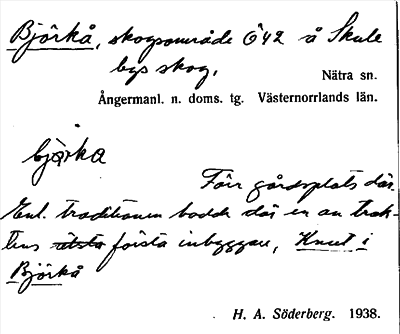 Björkå, skogsområde Ö42 å Skule
bys skog,
Nätra sn.
Ångermanl. n. doms. tg. Västernorrlands län.
bjärka
Förr gårdsplats där.
Enl. traditionen bodde där en av trak-
tens älsta första inbyggare, Knut i
Björkå
H. A. Söderberg. 1938.